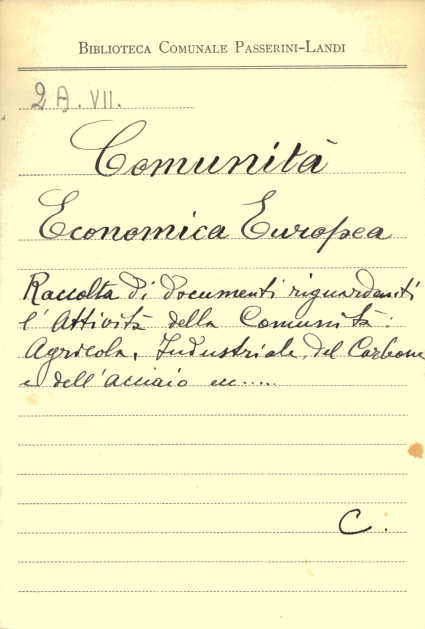 BIBLIOTECA COMUNALE PASSERINI-LANDI
2 A. VII.
Comunità
Economica Europea
Raccolta di documenti riguardanti
l'Attività della Comunità:
Agricola, Industriale, del Carbone
e dell'acciaio ecc....
C.